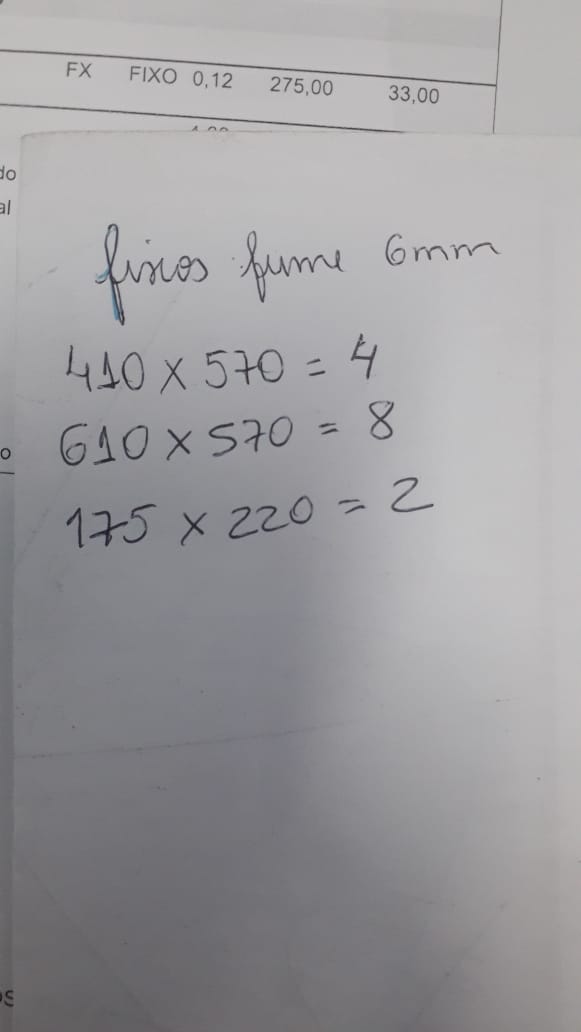 FX FIXO 0,12 275,00 33,00
do
al
fixos fume 6mm
410 x 570 = 4
610 x 570 = 8
175 x 220 = 2
o
os